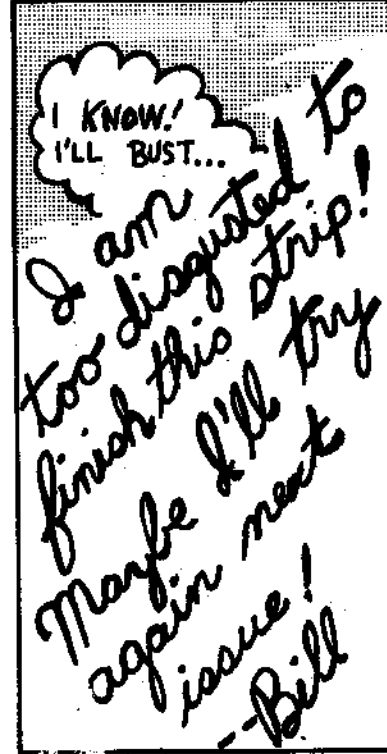 I KNOW!
I'LL BUST...
I am
too disgusted to
finish this strip!
Maybe I'll try
again next
issue!
--Bill